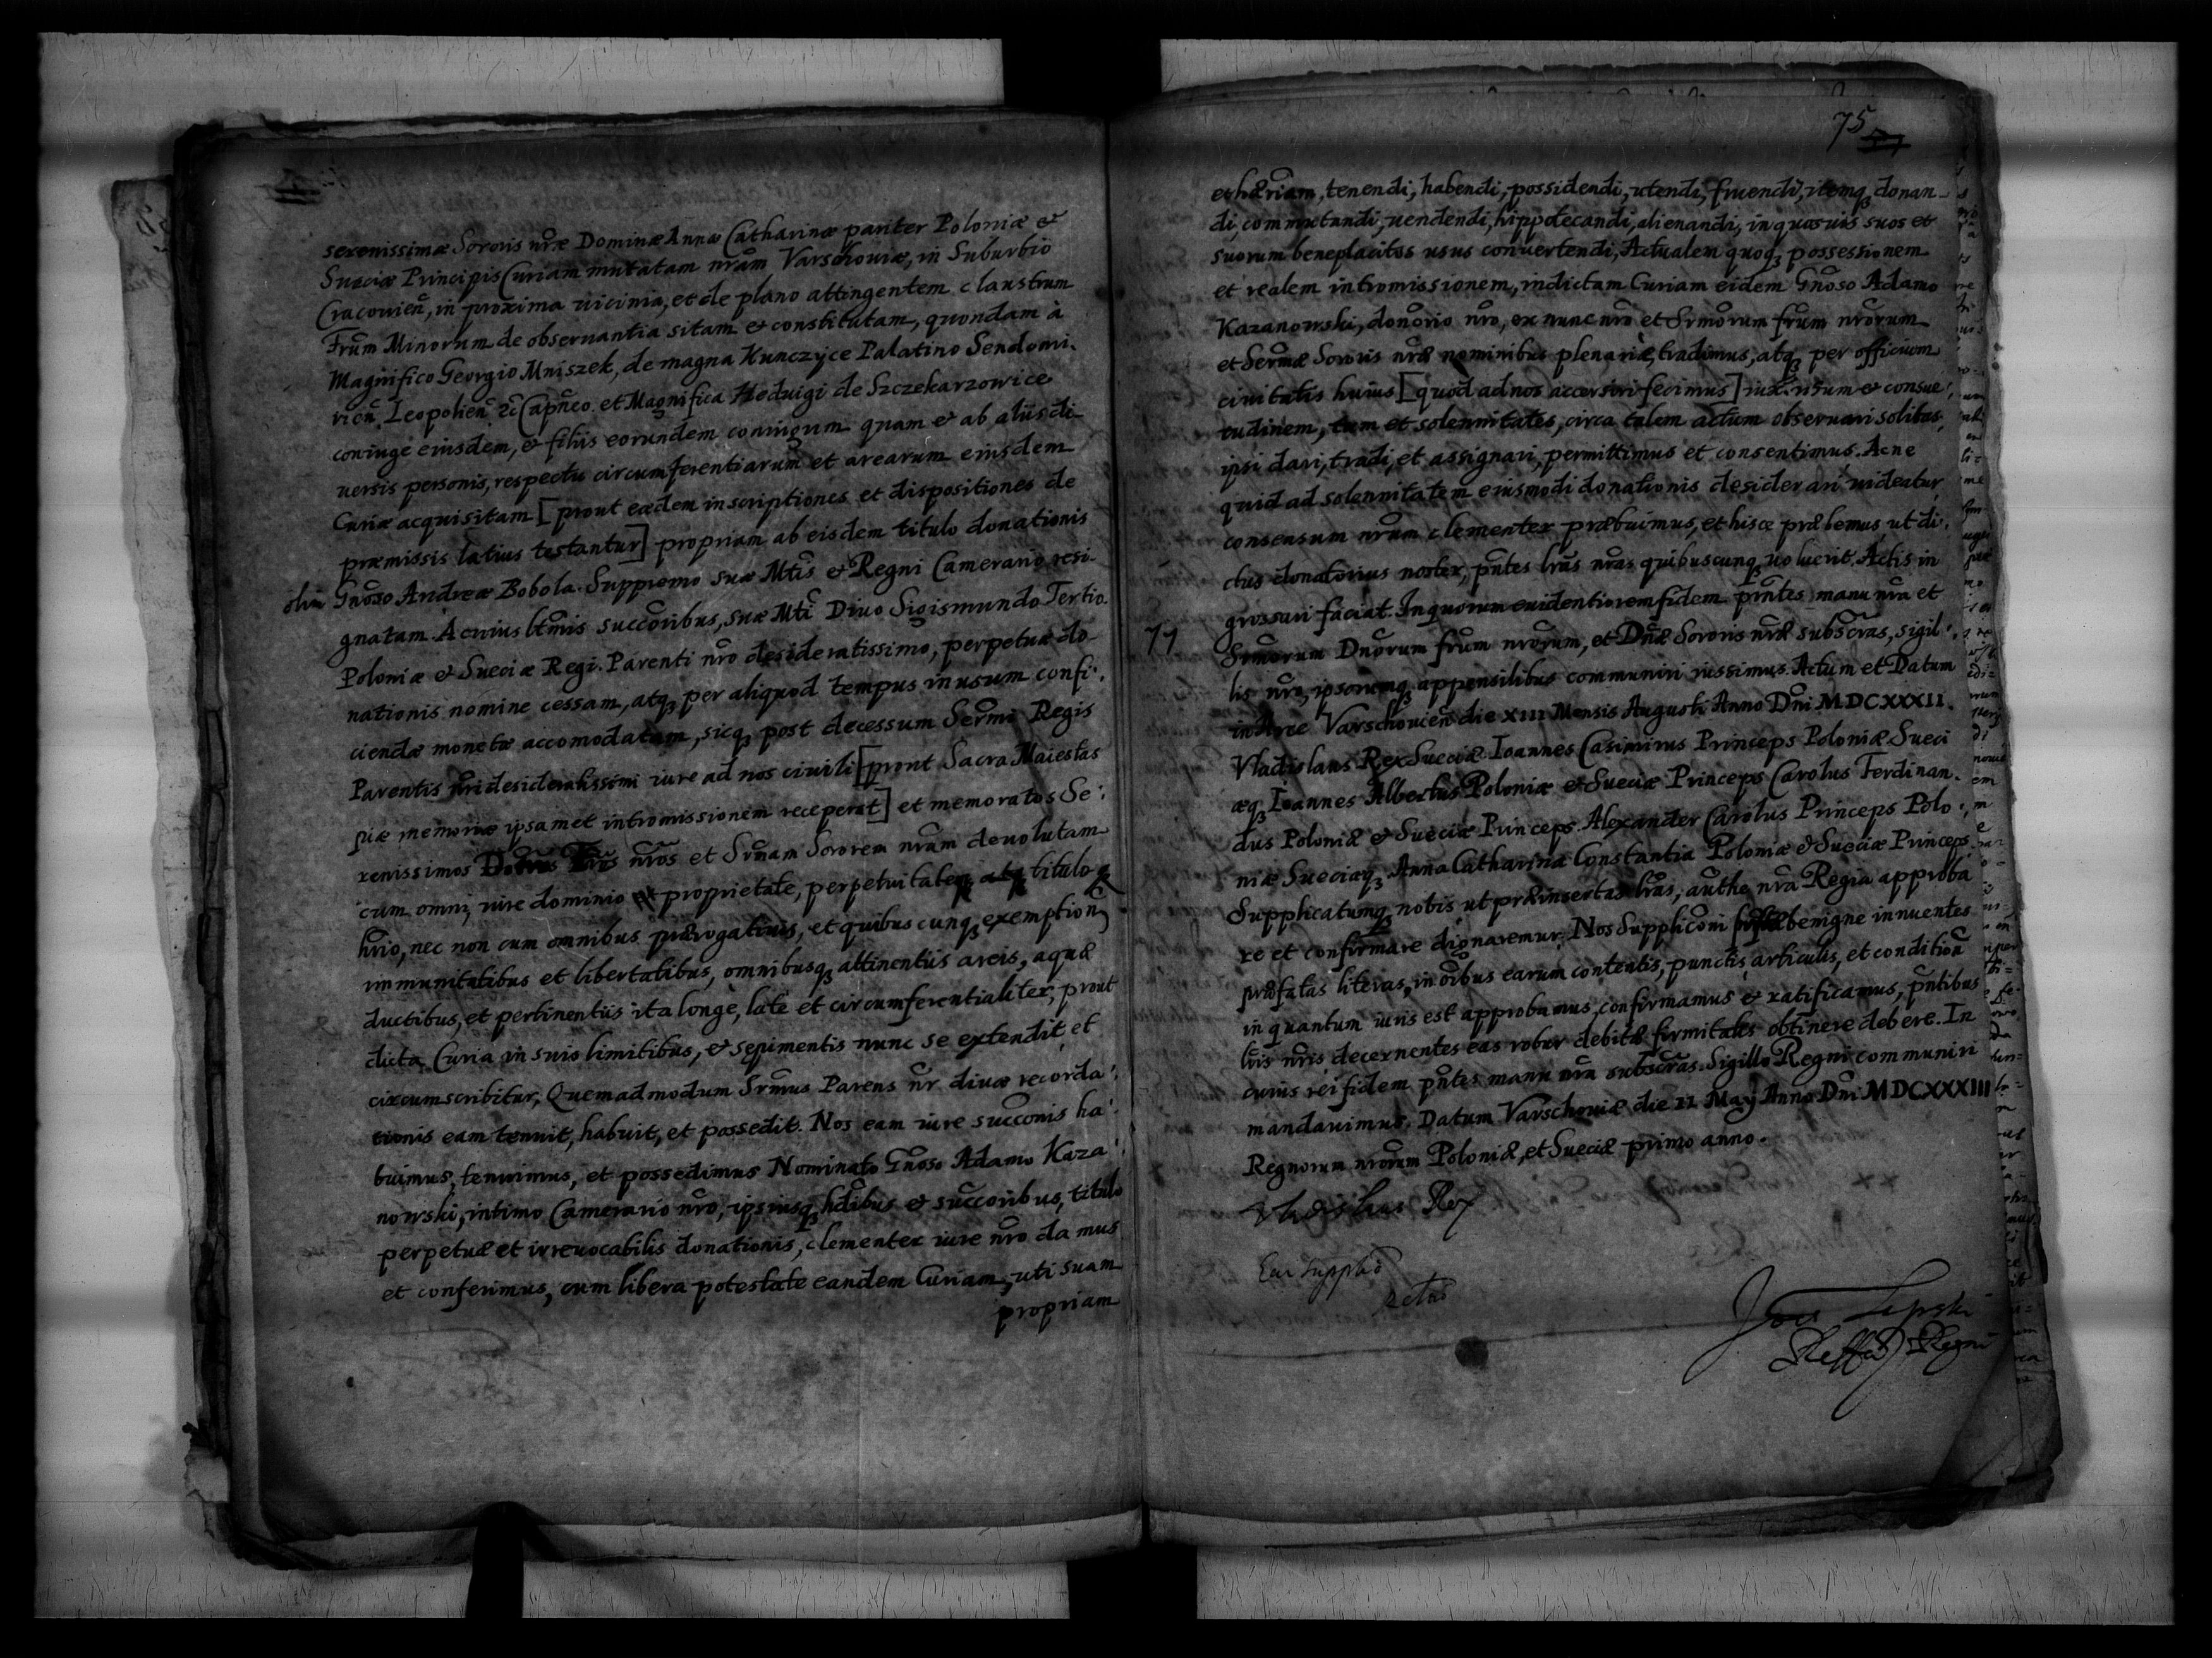 serenissimæ Sororis nræ Dominæ Annæ Catharinæ pariter Poloniæ &
Sueciæ Principis Curiam mutatam nram, Varschoviæ, in Suburbio
Cracovien, in proxima vicinia, et de plano attingentem claustrum
Frum Minorum de observantia sitam & constitutam, quondam à
Magnifico Georgio Mniszek, de magna Kunczyce Palatino Sendomi-
rien Leopolien &c Capneo. et Magnifica Heduigi de Szczekarzowice
coniuge eiusdem, & filiis eorundem coniugum quam & ab aliis di-
uersis personis, respectu circumferentiarum et arearum eiusdem
Curiæ acquisitam [prout eædem inscriptiones et dispositiones de
præmissis latius testantur] propriam ab eisdem titulo donationis
olim Gnoso Andreæ Bobola. Suppremo suæ Mtis & Regni Camerario resi-
gnatam. Ac eius ltmis succoribus, suæ Mti Diuo Sigismundo Tertio.
Poloniæ & Sueciæ Regi. Parenti nro desideratissimo, perpetuæ do-
nationis nomine cessam, atq per aliquod tempus in usum confi-
ciendæ monetæ accomodatam, sicq post decessum Sermi Regis
Parentis nri desideratissimi iure ad nos ciuili [prout Sacra Maiestas
piæ memoriæ ipsamet intromissionem receperat] et memoratos Se-
renissimos nros et Srmam Sororem nram deuolutam
cum omni, iure dominio et proprietate, perpetuitateq titulo
hrio, nec non cum omnibus prærogatiuis, et quibuscunq exemption
immunitatibus et libertatibus, omnibusq attinentiis areis, aquæ
ductibus, et pertinentiis ita longè, latè et circumferentialiter, prout
dicta Curia in suis limitibus, & sepimentis nunc se extendit, et
circumscribitur, Quemadmodum Srmus Parens nr diuæ recorda-
tionis eam tenuit, habuit, et possedit. Nos eam iure succonis ha-
buimus, tenuimus, et possedimus Nominato Gnoso Adamo Kaza-
nowski, intimo Camerario nro, ipsiusq hdibus & succoribus, titulo
perpetuæ et irreuocabilis donationis, clementer iure nro damus
et conferimus, cum libera potestate eandem Curiam, uti suam
propriam
75
et hæriam, tenendi, habendi, possidendi, utendi, fruendi, itemq donan-
di, commutandi, uendendi, hippotecandi, alienandi, in quosuis suos et
suorum beneplacitos usus conuertendi, Actualem quoq possessionem
et realem intromissionem, in dictam Curiam eidem Gnoso Adamo
Kazanowski, donorio nro, ex nunc nro et Srmorum frum nrorum
et Sermæ Sororis nræ nominibus plenariè, tradimus, atq per officium
ciuitatis huius [quod ad nos accersiri fecimus] iuxt. usum & consue-
tudinem, tum et solennitates, circa talem actum obseruari solitas,
ipsi dari, tradi, et assignari, permittimus et consentimus. Ac ne
quid ad solennitatem eiusmodi donationis desiderari uideatur,
consensum nrum clementer præbuimus, et hisce præbemus, ut di-
ctus donatorius noster, pntes lras nras quibuscunq uoluerit. Actis in
grossari faciat. In quorum euidentiorem fidem pntes manu nra et
77
Srmorum Dnorum frum nrorum, et Dnæ Sororis nræ subscras, sigil-
lis nro, ipsorumq appensilibus communiri iussimus. Actum et Datum
in Arce Varschouien die XIII Mensis Augusti Anno Dni MDCXXXII.
Vladislaus Rex Sueciæ. Ioannes Casimirus Princeps Poloniæ Sueci
æq Ioannes Albertus Poloniæ & Sueciæ Princeps Carolus Ferdinan-
dus Poloniæ & Sueciæ Princeps. Alexander Carolus Princeps Polo-
niæ Sueciæq Anna Catharina Constantia Poloniæ & Sueciæ Princeps.
Supplicatumq nobis ut præinsertas lras, authe nra Regia approba
re et confirmare dignaremur. Nos Suppliconi benigne innuentes
præfatas literas, in oibus earum contentis, punctis, articulis, et condition
in quantum iuris est approbamus, confirmamus & ratificamus, pntibus
lris nris, decernentes eas robur debitæ firmitatis obtinere debere. In
cuius rei fidem pntes manu nra subscras. Sigillo Regni communiri
mandauimus. Datum Varschouiæ die 11 May Anno Dni MDCXXXIII
Regnorum nrorum Poloniæ, et Sueciæ primo anno.
Vladislaus Rex
Joes Lipski
Regni